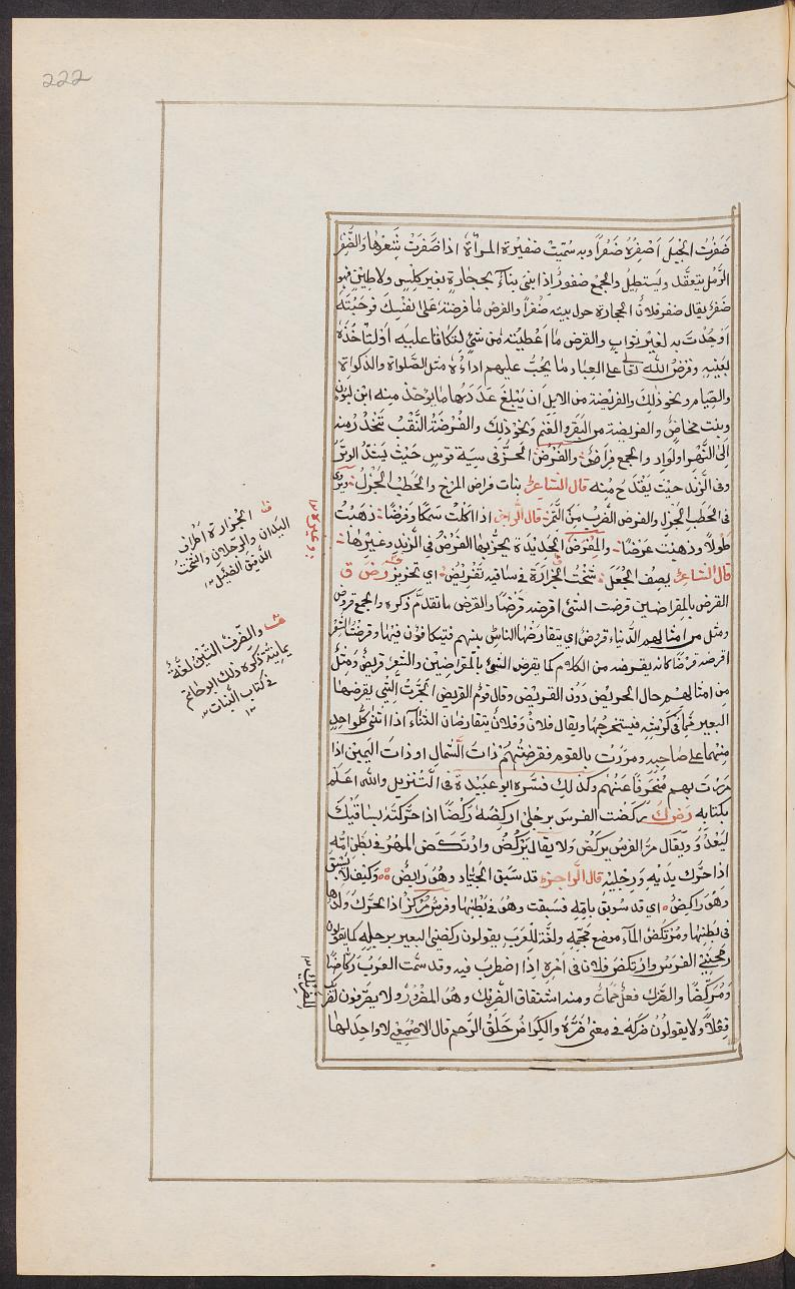 222
ضَفَرْتُ الحَبْلَ اَضْفِرُهُ ضَفْرًا وبه سُمّيت ضفيرة المرأة اذا ضَفَرَتْ شَعْرَها والضَّفِرُ
الرَّمْل يتعقّد ويَستطِيلُ والجمع ضفورُ اِذا بنى بنَاءً بحجارةٍ بغير كِلْسٍ ولا طِينٍ فهو
ضفرٌ يقال ضفر فلانٌ الحجارة حول بيته ضَفْرًا والفرض ما فرضتهُ عَلٰى نفسِك فوَحَبْتَهُ
اَوْجُدْتَ به لغير ثوابٍ والقرض ما اَعْطَيْتَه من شيْءٍ لتكافا عليه اَوْ لتأخُذَهُ
بعَينه وفرضُ اللّه تعالٰى على العِباد ما يجبُ عليهم اداءُه مثل الصَّلواة والذكواة
والصِّيام ونحو ذلِكَ والفريضة من الابل اَن يَبْلغ عَدَدَها ما يوخَذ منه ابن لبون
وبنت مخاضٍ والفريضة من البَقَر والغنم ونحو ذلِكَ والفُرْضَةُ النَّقْبُ تَنْحَدِرُ منه
اِلى النَّهر او لوادٍ والجمع فراضٌ والفَرْضُ الحَزُّ فى سِيَة قوسٍ حَيْث يُشَدُّ الوتَرُ
وفى الزَّند حيْث يُقْدَح مِنه قال الشاعِرُ بنات فراض المرْخ والحَطَبُ الجُزْلُ ويروى
فى الحَطَبِ الجَزلِ والفرض الضَّرْبُ مِنَ التَّمْر قال الراجز اذا اكلت سمكًا وفَرْضًا ذهَبْتُ
طولاً وذهبْت عَرْضًا والمِفْرَضُ الحَديْدَة يحزّ بها الفَرْضُ فى الزَّند وغيرها
قال الشاعِرُ يصِف الجُعَل شخْتُ الجُزَارَة فى ساقيه تَفْرِيْضُ اى تحزيز رض ق
القرض بالمِقراضين قرضت الشئ اقرضه قرْضًا والقرض ما تقدّم ذكره والجمع قروض
ومثل من امثالهم الدُّنياء قروضٌ اى يتقارضها الناسُ بينهم فيتكافؤن فيْها وقرضْتُ الشِّعْر
اقرضه قرْضًا كانه يقرضه من الكلام كما يقرض الشئ بالمقراضيْن والشعر قريضٌ ومثل
مِن امثالهم حال الجريضُ دُوْن القريْض وقال قوم القريض الجِرَّةُ الَّتِي يقرضها
البعير ثمّا فى كَرِشِهِ فيستخرجُها ويقال فلانٌ وفلانٌ يتقارضان الثَّناءَ اذا اثنى كلُّ واحدٍ
منهما على صاحِبِه ومررت بالقوم فقرضتُهُمْ ذاتَ الشِّمال او ذاتَ اليمين اذا
مررت بهم مُنحَرفًا عَنْهُم وكذلك فسّره ابوعبَيْدة فى التَّنزيل والله اعلَم
بكتابه رَضَ كُ رَكَضت الفرسَ برجْلى اركضهُ رَكْضًا اذا حرّكتَهُ بساقيْكَ
ليَعْدُوَ ويقال مرّ الفرسُ يركض ولا يقال يَرْكُضُ وارتَكَضَ المُهْرُ فى بطْن امِّه
اذا حرّك يديْه ورجليْه قال الراجز قد سَبَق الجياد وهُو رابضُ وكيف لا يسْبِقُ
وهُو راكضُ اى قد سُوبق بامّه فسبقت وهُو فى بَطْنِها وفرسٌ مُرْكِضٌ اذا تحرّك ولدُها
فى بطنِها ومُرْتكَضُ المآء موضع مَجَمِّهِ ولغَة للعَرب يقولون ركضنى البعير برجلِهِ كما يقولون
رمحنِي الفرسُ وارْتكضَ فلان فى اَمره اِذا اضطرب فيه وقد سمّت العربُ ركاضًا
ومُرَكِّضًا والضَّرْك فعلٌ مُمات ومنه اشتقاق الضّريْك وهُو المضرُوْر ولا يصرّفون لضريك
فِعْلاً ولا يقولُونَ ضركَه فى معنى ضَرَّهُ والكِراضُ حَلَقُ الرَّحم قال الاصْمَعى لا واحدَ لها
وغيره ١٢
للضريك ١٢
ف الجُزَارة اَطراف
اليَدان والرِّجلان والشَّخْتُ
الدَّقيق القليل ١٢
ف والضَّرِفُ التّيْن لغَةٌ
يمانيَّة ذكره ذلك ابو حاتم
فى كتاب النَّبات
١٢